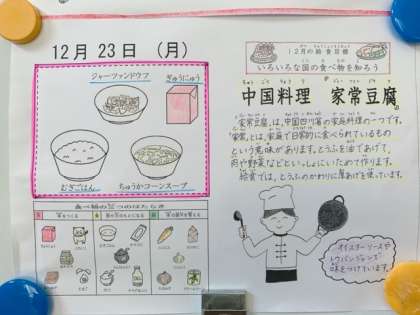 12月23日（月）
ジャーツァンドウフ
ぎゅうにゅう
むぎごはん
ちゅうかコーンスープ
食べ物の三つのはたらき
12月の給食目標
いろいろな国の食べ物を知ろう
中国料理 家常豆腐
「家常豆腐」は、中国四川省の家庭料理の一つです。
「家常」とは、家庭で日常的に食べられているもの
という意味があります。とうふを油であげて、
肉や野菜などといっしょにいためて作ります。
給食では、とうふのかわりに厚あげを使っています。
オイスターソースや
トウバンジャンで
味をつけています。